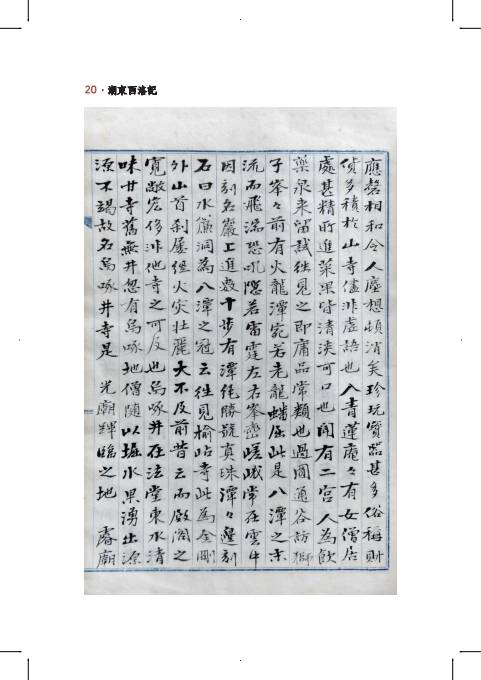 20 · 湖東西洛記
應磬相和令人塵想頓消矣珍玩寶器甚多俗稱財
僨多積於山寺儘非虛語也入青蓮庵々有女僧居
處甚精所進菜果皆清淡可口也聞有二宮人為飲
藥泉来留試徃見之即庸品常類也過圓通谷訪獅
子峯々前有火龍潭宛若老龍蟠屈此是八潭之末
流而飛瀑恐吼隱若雷霆左右峯巒嵯峨常在雲中
因刻名巖上進數十步有潭絶勝號真珠潭々邊刻
石曰水簾洞為八潭之冠云徃見楡岾寺此為金剛
外山首刹屢經火灾壯麗大不及前昔云而殿閣之
寬敞宏侈非他寺之可及也烏啄井在法堂東水清
味甘寺舊無井忽有烏啄地僧隨以堀水果湧出源
源不竭故名烏啄井寺是 光廟輝臨之地 睿廟